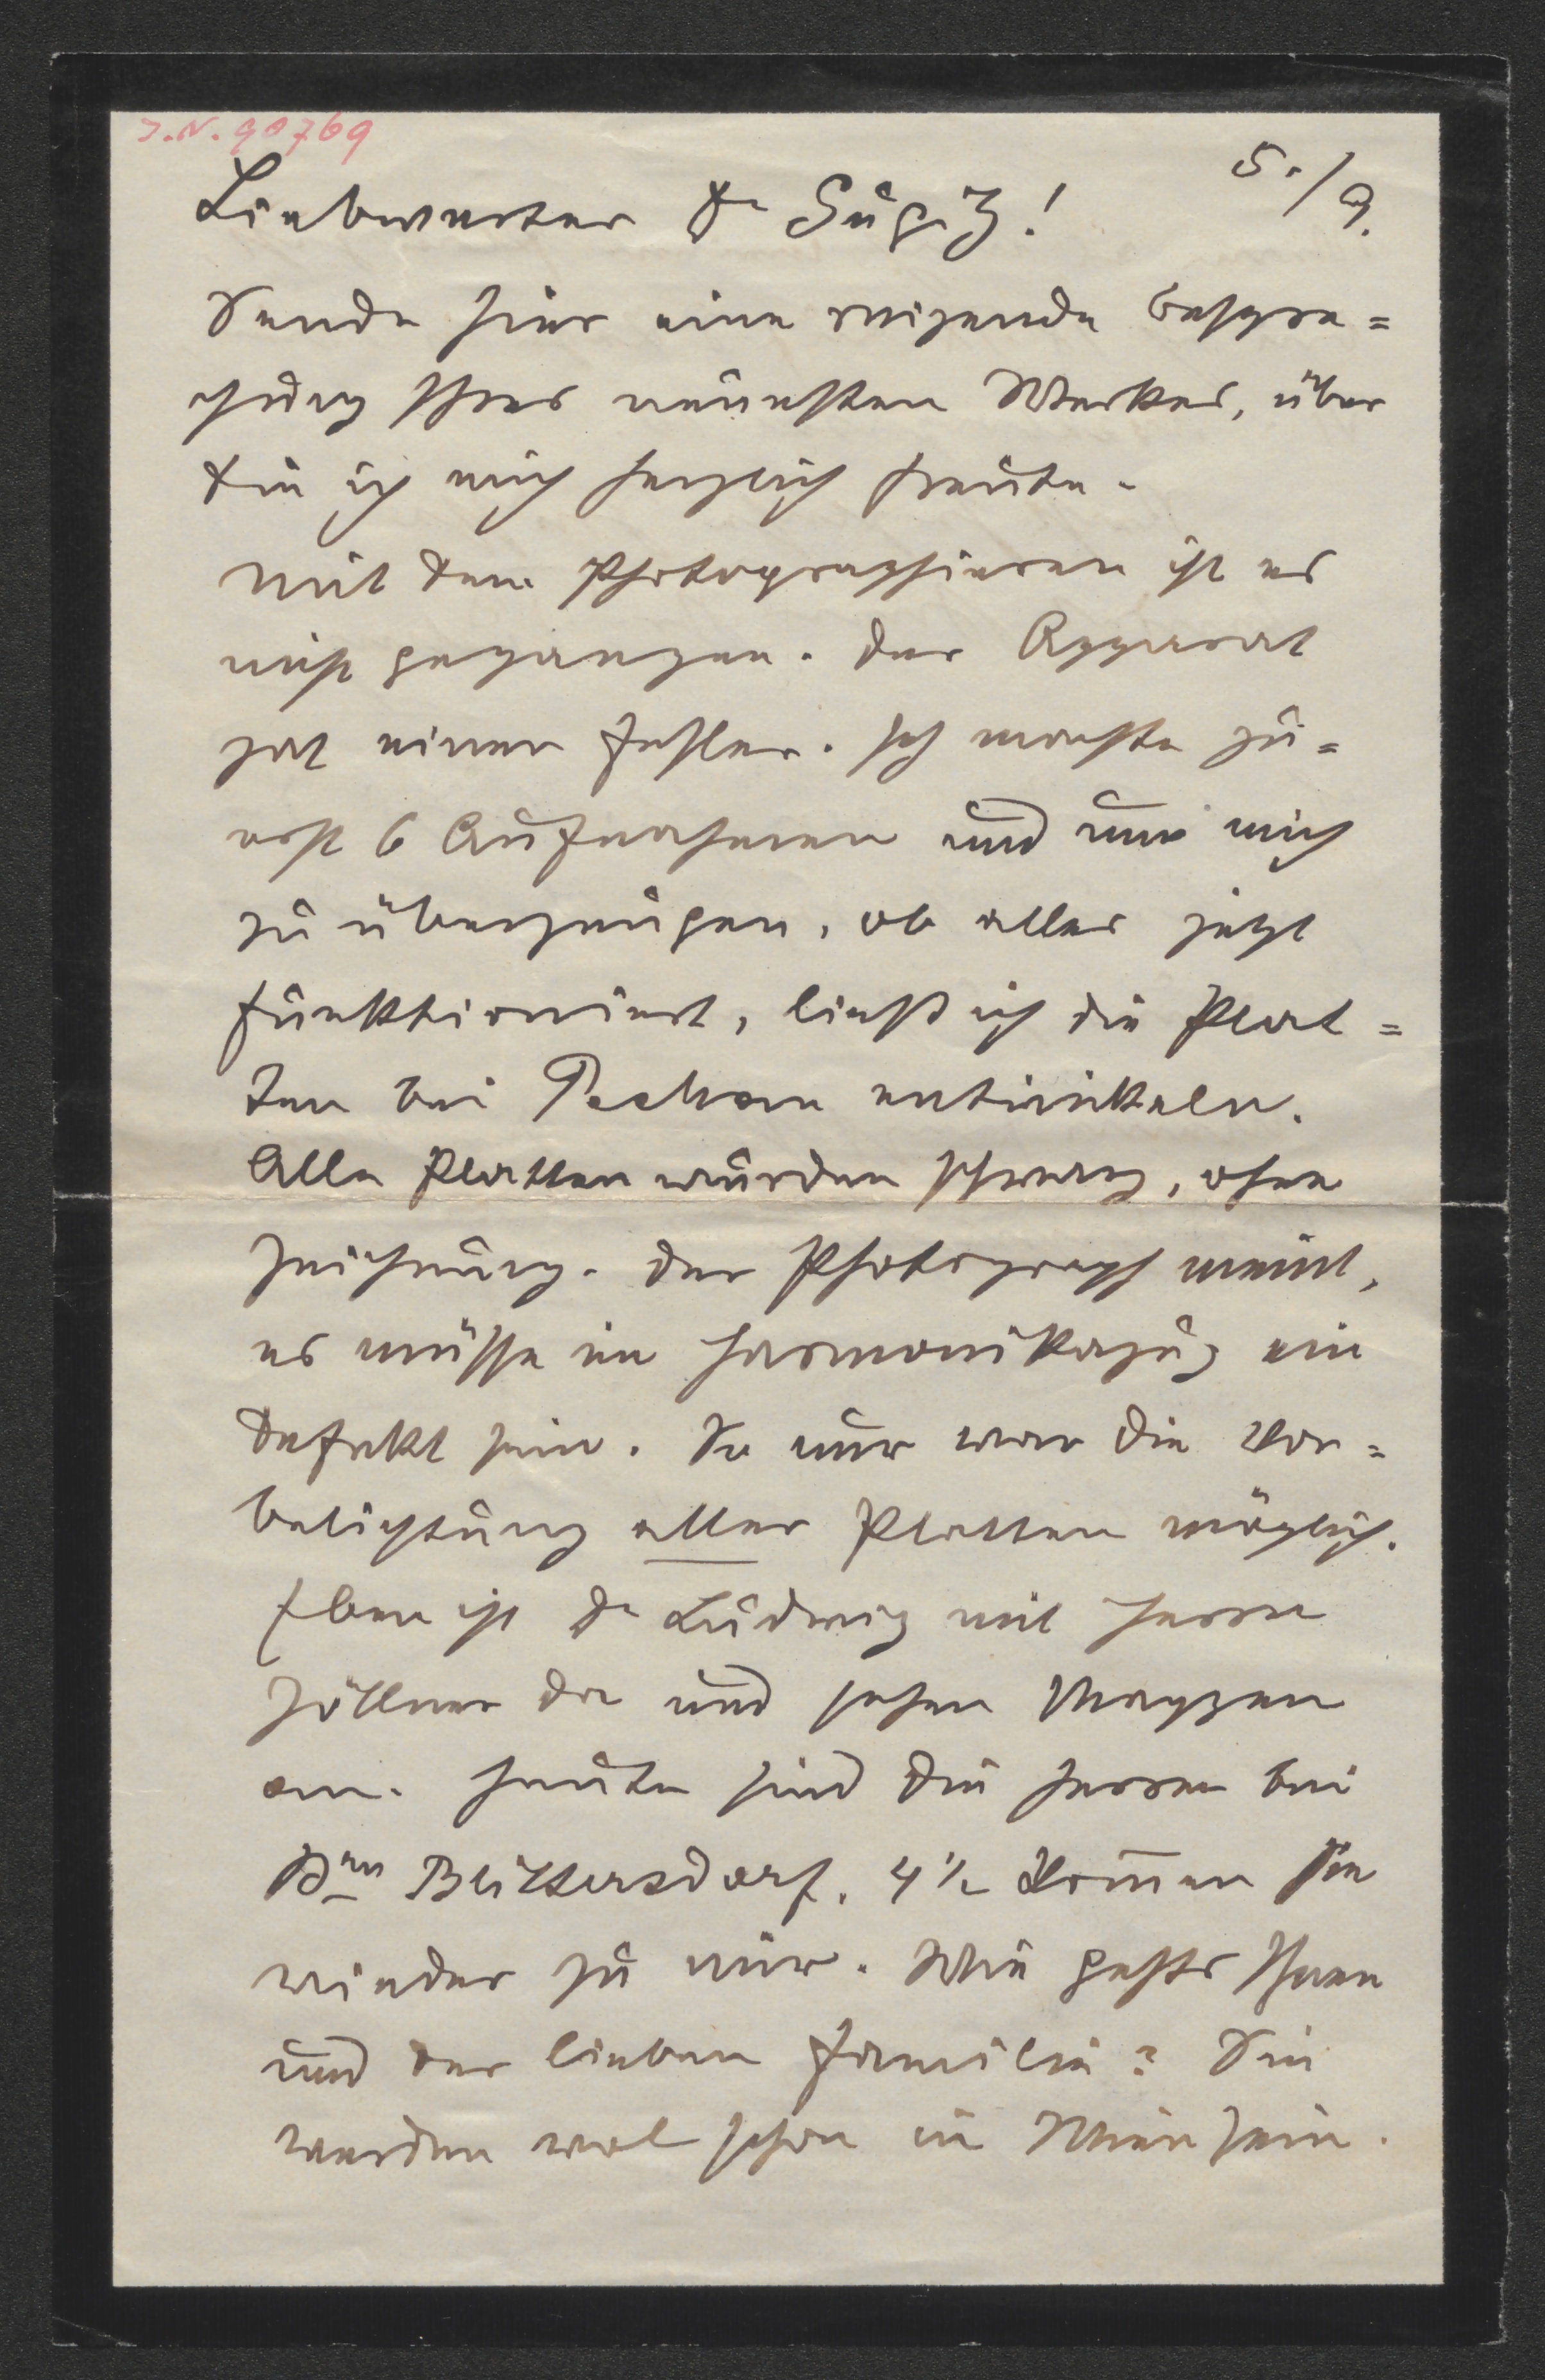 J.N. 90769
5./9.
Liebwerter Dr Gugitz!
Sende hier eine reizende Bespre=
chung Ihres neuesten Werkes, über
die ich mich herzlich freute.
Mit dem Photographieren ist es
nicht gegangen. Der Apparat
hat einen Fehler. Ich machte zu=
erst 6 Aufnahmen und um mich
zu überzeugen, ob alles jetzt
funktioniert, ließ ich die Plat=
ten bei entwickeln.
Alle Platten wurden schwarz, ohne
Zeichnung. Der Photograph meint,
es müsse im Harmonikazug ein
Defekt sein. So nur war die Vor=
belichtung aller Platten möglich.
Eben ist Dr Ludwig mit Herrn
Zöllner da und sehen Mappen
an. Heute sind die Herren bei
Bon Blittersdorf. 4½ kommen sie
wieder zu mir. Wie gehts Ihnen
und der lieben Familie? Sie
werden wol schon in Wien sein.